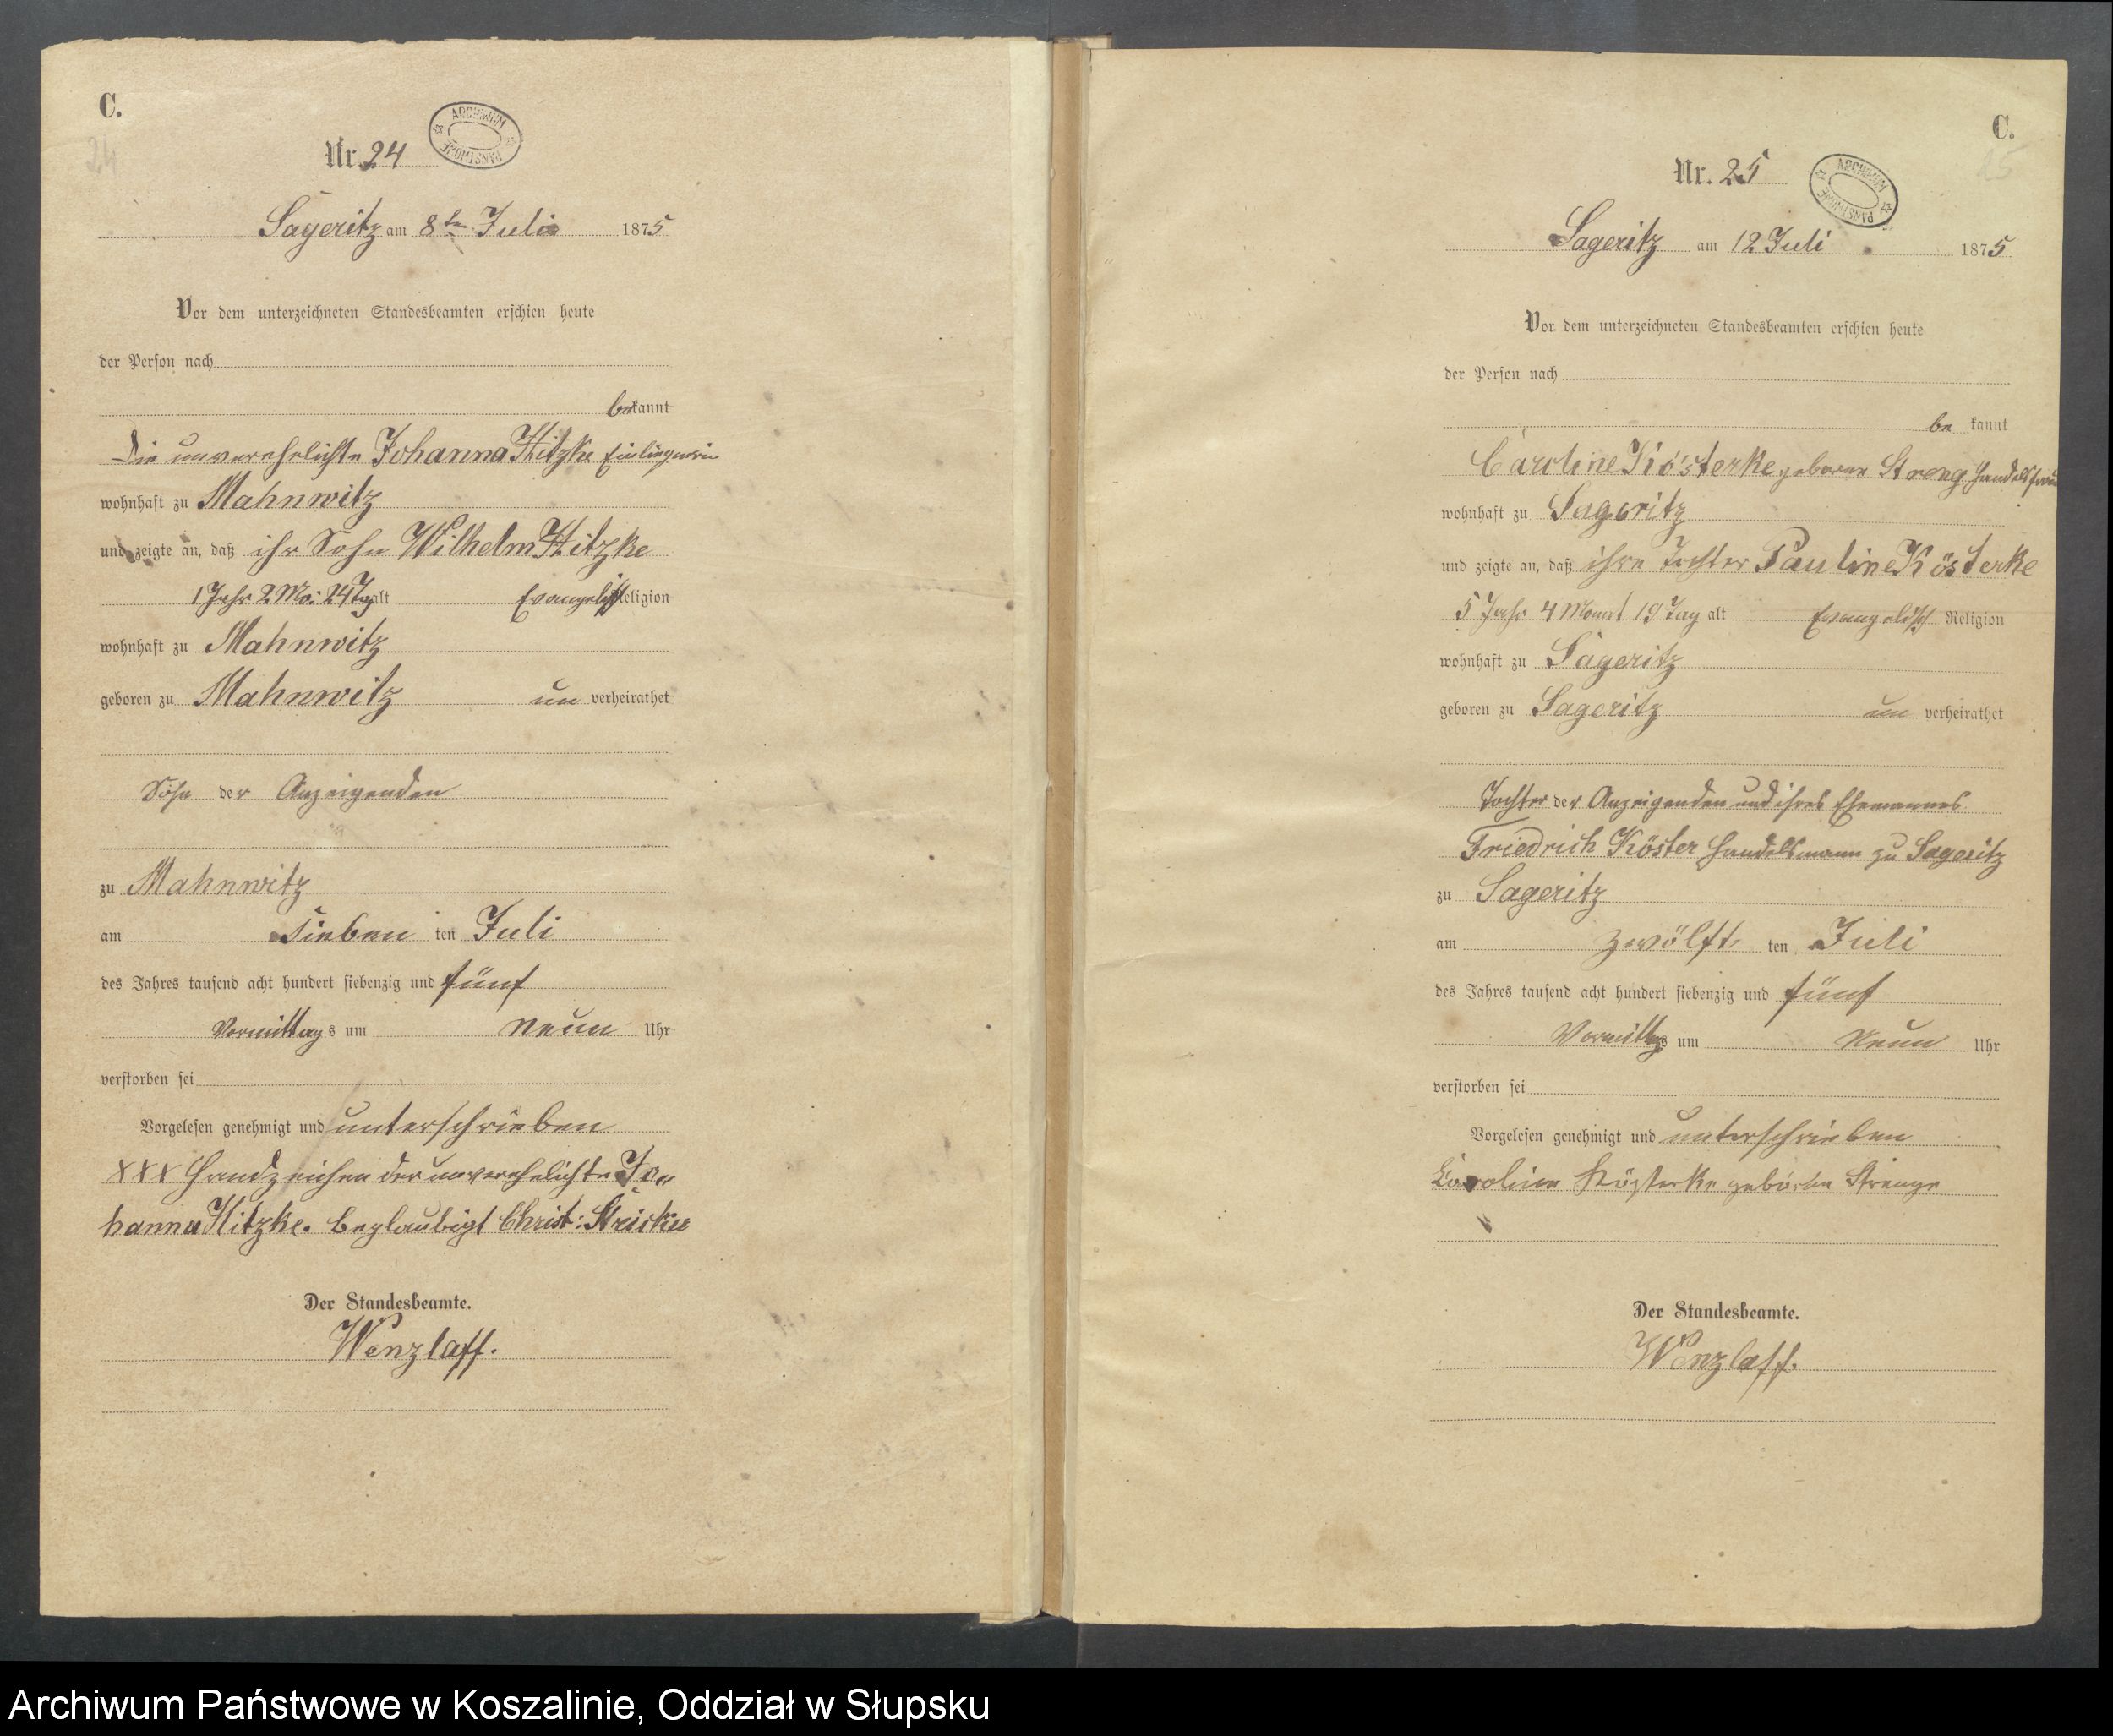 C.
24
Nr. 24
ARCHIWUM PAŃSTWOWE
Sageritz am 8ten Juli 1875
Vor dem unterzeichneten Standesbeamten erschien heute
der Person nach
bekannt
Die unverehelichte Johanna Hitzke Einliegerin
wohnhaft zu Mahnwitz
und zeigte an, daß ihr Sohn Wilhelm Hitzke
1 Jahr 2 Mo: 24 Tag alt Evangelisch Religion
wohnhaft zu Mahnwitz
geboren zu Mahnwitz un verheirathet
Sohn der Anzeigenden
zu Mahnwitz
am sieben ten Juli
des Jahres tausend acht hundert siebenzig und fünf
Vormittags um neun Uhr
verstorben sei
Vorgelesen genehmigt und unterschrieben
XXX Handzeichen der unverehelichte Jo„
hanna Hitzke. beglaubigt Christ:
Der Standesbeamte.
Wenzlaff.
C.
25
Nr. 25
ARCHIWUM PAŃSTWOWE
Sageritz am 12 Juli 1875
Vor dem unterzeichneten Standesbeamten erschien heute
der Person nach
be kannt
Caroline Kösterke geborene Streng Handelsfrau
wohnhaft zu Sageritz
und zeigte an, daß ihre Tochter Pauline Kösterke
5 Jahr 4 Monat 19 Tag alt Evangelisch Religion
wohnhaft zu Sageritz
geboren zu Sageritz un verheirathet
Tochter der Anzeigenden und ihres Ehemannes
Friedrich Köster Handelsmann zu Sageritz
zu Sageritz
am zwölft ten Juli
des Jahres tausend acht hundert siebenzig und fünf
Vormittags um Neun Uhr
verstorben sei
Vorgelesen genehmigt und unterschrieben
Karoline Kösterke geborene Strenge
Der Standesbeamte.
Wenzlaff.
Archiwum Państwowe w Koszalinie, Oddział w Słupsku